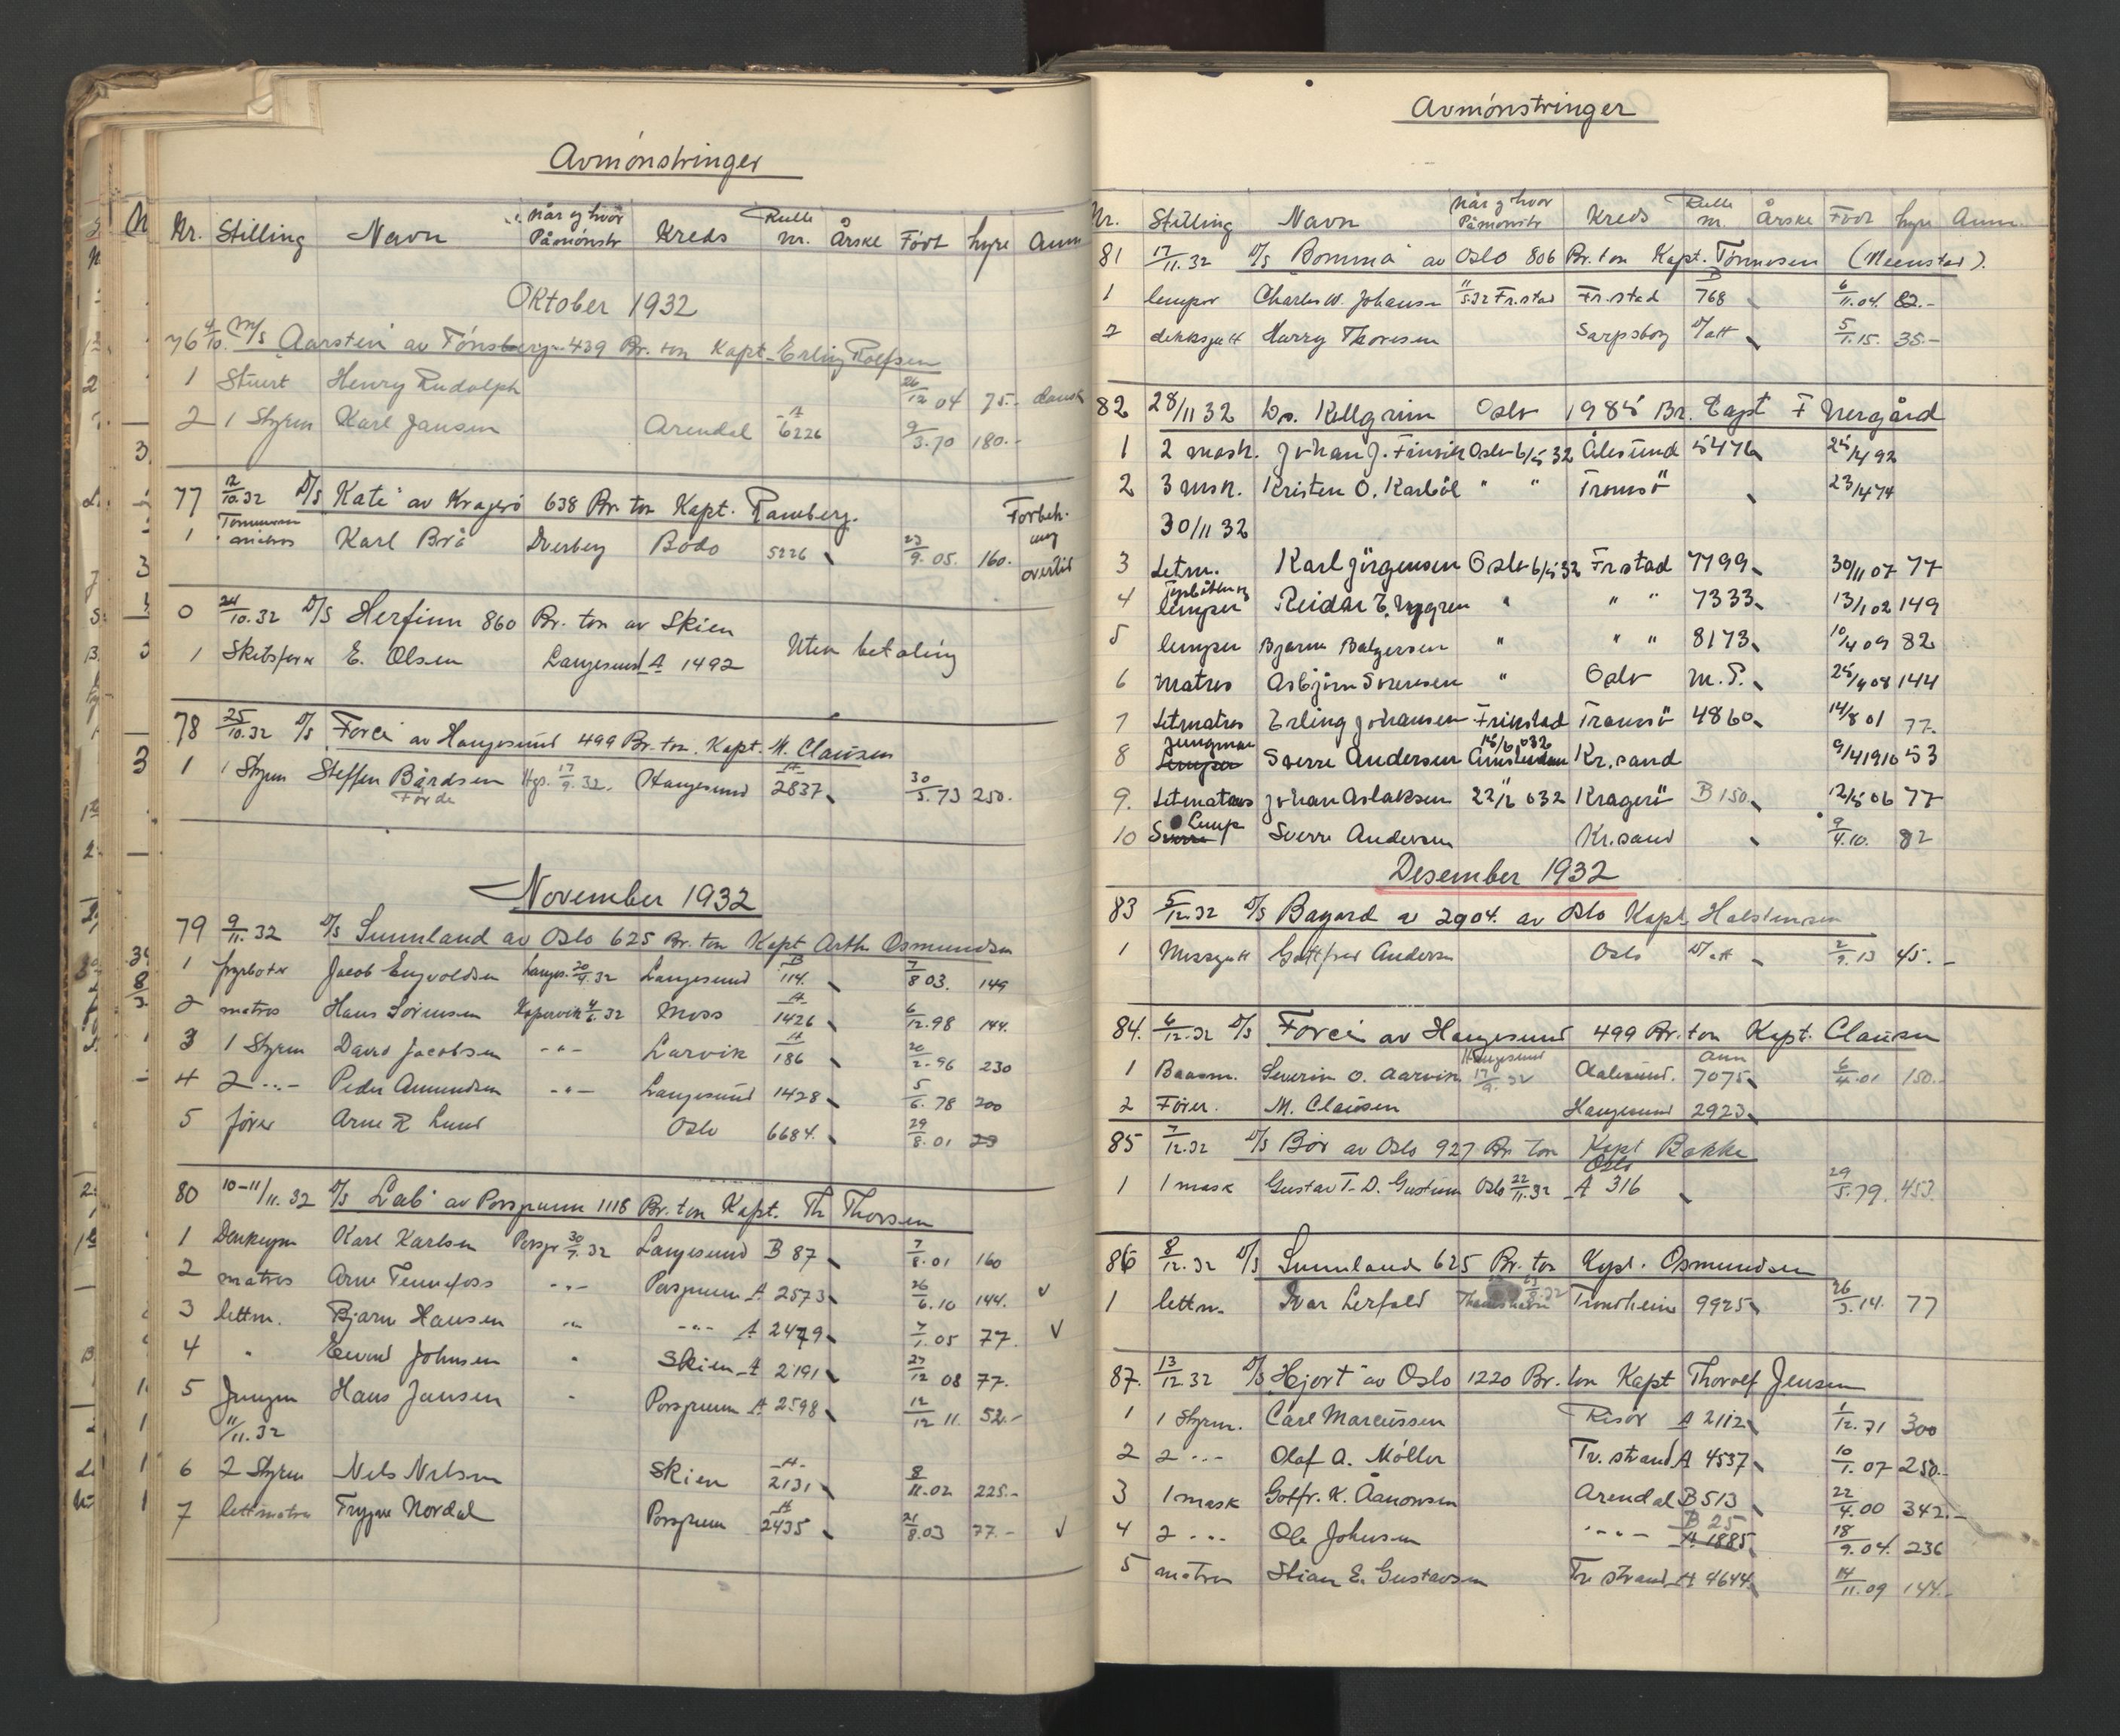 Avmónstringer
Nr. Stilling Navn Når og hvor Påmónstr Kreds Rulle nr. Årske Födt hyre Anm
Oktober 1932
76 4/10. M/s Aarstein av Tónsberg 439 Br. ton Kapt. Erling Rolfsen
1 Stuert Henry Rudolph 26/12 04 75.- dansk
2 1 Styrm Karl Jansen Arendal A 6226 9/3.70 180.-
77 12/10.32 D/s Kate av Kragerö 638 Br. ton Kapt. Ramberg.
1 Tömmerm. matros Karl Brå Dverberg Bodo 5226 23/9.05. 160. Forbeh. overtid
0 24/10.32 D/s Herfinn 860 Br. ton av Skien
1 E. Olsen Langesund A 1492 Uten betaling
78 25/10.32 D/s Forci av Haugesund 499 Br. ton. Kapt. M. Clausen
1 1 Styrm Steffen Bårdsen Hgs. 17/9.32. Haugesund A 2837 30/3.73 250.
Förde
November 1932
79 9/11.32 D/s Sunnland av Oslo 625 Br. ton Kapt Arth Osmundsen
1 fyrböter Jacob Engvoldsen Langes. 20/9.32 Langesund B 114. 7/8 03. 149
2 matros Hans Sörensen Kopervik 4/6.32 Moss A 1426 6/12.98 144.
3 1 Styrm David Jacobsen -"- Larvik A 186 20/2.96 230
4 2 -"- Peder Amundsen -"- Langesund 1428 5/6.78 200
5 förer Arne R Lund Oslo 6684. 29/8.01
80 10-11/11.32 D/s Lab av Porsgrunn 1118 Br. ton Kapt. Th Thorsen
1 Karl Karlsen Porsgr 30/9.32 Langesund B 87 7/8.01 160
2 matros Arne Tennefoss -"- Porsgrunn A 2573 26/6.10 144. ✓
3 lettm. Bjarne Hansen -"- -"- A 2479 7/1.05 77. ✓
4 " Eivind Johnsen " Skien A 2191 27/12 08 77.
5 Jungm Hans Jansen " Porsgrunn A 2598 12/12 11. 52.-
11/11.32
6 2 Styrm Nils Nilsen Skien A 2131 8/11.02 225.-
7 lettmatros Trygve Nordal Porsgrunn A 2435 21/8.03 77.- ✓
Avmónstringer
Nr. Stilling Navn Når og hvor Påmönstr Kreds Rulle nr. Årske Födt hyre Anm.
81 17/11.32 D/s Bomma av Oslo 806 Br. ton Kapt. Tönnesen
1 lemper Charles W. Johansen 11/5 32 Fr.stad Fr.stad B 768 6/11.04. 82.-
2 dekksgutt Harry Thoresen Sarpsborg D/att 5/1.15. 35.-
82 28/11 32 Ds. Kellgrim Oslo 1985 Br. Capt F Nergård
1 2 mask. Johan J. Oslo 6/5 32 Ålesund 5476 25/4 92
2 3 msk. Kristen O. Karlöl " " Tromsö 23/4 74
30/11 32
3 Letm. Karl Jörgensen Oslo 6/5 32 Frstad 7799 30/11 07 77
4 fyrböter og lemper Reidar E. Nygren " " " 7333 13/1 02 149
5 lemper Bjarne " " " 8173 10/4 09 82
6 Matros Asbjörn Sörensen " Oslo M.P. 25/4 08 144
7 Letmatros Erling Johansen Frikstad Tromsö 4860 14/8 01 77.
8 Jungman Sverre Andersen 15/6 032 Amsterdam Kr.sand 9/4 1910 53
9. Letmatros Johan Aslaksen 22/6 032 Kragerö B 150 12/5 06 77
10 Lemp Sverre Andersen Kr.sand 9/4.10. 82
Desember 1932
83 5/12.32 D/s Bayard a 2904. av Oslo Kapt. Halstensen
1 Messgutt Gottfred Andersen Oslo D/att 2/9.13 45.-
84. 6/12.32 D/s Forci av Haugesund 499 Br. ton Kapt. Clausen
1 Baasm. Severin O. Aarvik Haugesund 17/9.32 Aalesund. Ann 7075 6/4.01 150.-
2 Förer. M. Clausen Haugesund 2923
85 7/12.32 D/s Bör av Oslo 927 Br. ton Kapt Bakke
1 1 mask Gustav T. D. Oslo 22/11.32 Oslo A 316 29/5.79. 453.
86 8/12.32 D/s Sunnland 625 Br. ton Kapt. Osmundsen
1 lettm. Ivar Lerfald Trondheim 9925 26/3.14. 77
87. 13/12.32 D/s Hjort av Oslo 1220 Br. ton Kapt Thorolf Jensen
1 1 Styrm. Carl Marcussen Risör A 2112 1/12.71 300
2 2 -"- Olaf A. Möller Tv. strand A 4537 10/1.07 250.-
3 1 mask Gotfr. K. Aanonsen Arendal B 513 22/4.00 342.-
4 2 -"- Ole Johnsen -"- B 25 A 1885 18/9.04. 236
5 matros Stian E. Gustavsen Tv strand A 4644 14/11.09 144.-